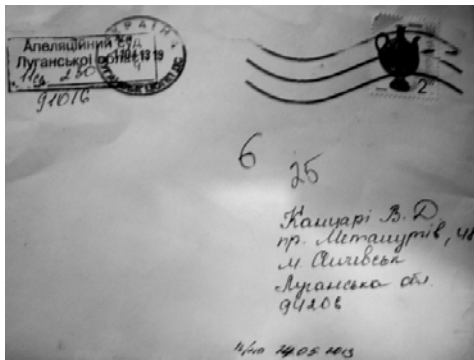 Апеляційний суд
Луганської
91016
2
6
25
Канцарі В. Д.
пр. Металургів,
м. Алчевськ
Луганська обл.
94206
24.05 2013